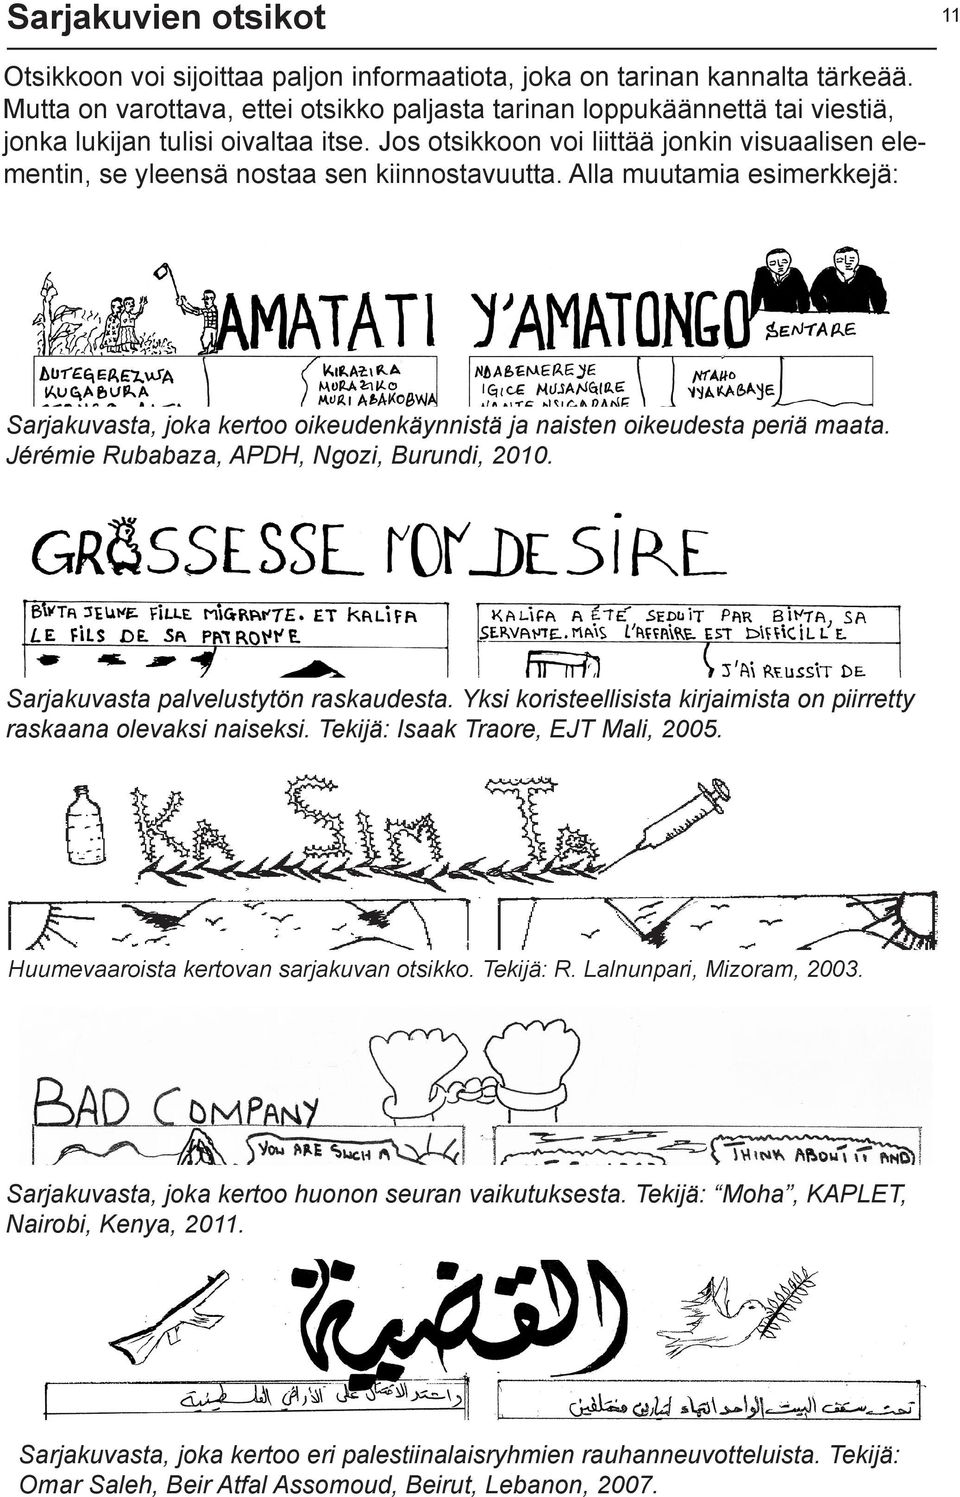 Sarjakuvien otsikot
11
Otsikkoon voi sijoittaa paljon informaatiota, joka on tarinan kannalta tärkeää.
Mutta on varottava, ettei otsikko paljasta tarinan loppukäännettä tai viestiä,
jonka lukijan tulisi oivaltaa itse. Jos otsikkoon voi liittää jonkin visuaalisen ele-
mentin, se yleensä nostaa sen kiinnostavuutta. Alla muutamia esimerkkejä:
AMATATI Y'AMATONGO
SENTARE
DUTEGEREZWA
KUGABURA
KIRAZIRA
MURAZIKO
MURI ABAKOBWA
NDABEMEREYE
IGICE MUSANGIRE
NTAHO
VYAKABAYE
Sarjakuvasta, joka kertoo oikeudenkäynnistä ja naisten oikeudesta periä maata.
Jérémie Rubabaza, APDH, Ngozi, Burundi, 2010.
GROSSESSE NON DESIRE
BINTA JEUNE FILLE MIGRANTE. ET KALIFA
LE FILS DE SA PATRONNE
KALIFA A ÉTÉ SEDUIT PAR BINTA, SA
SERVANTE. MAIS L'AFFAIRE EST DIFFICILLE
J'AI REUSSIT DE
Sarjakuvasta palvelustytön raskaudesta. Yksi koristeellisista kirjaimista on piirretty
raskaana olevaksi naiseksi. Tekijä: Isaak Traore, EJT Mali, 2005.
KA SIM TA
Huumevaaroista kertovan sarjakuvan otsikko. Tekijä: R. Lalnunpari, Mizoram, 2003.
BAD COMPANY
YOU ARE SUCH A
THINK ABOUT IT AND
Sarjakuvasta, joka kertoo huonon seuran vaikutuksesta. Tekijä: “Moha”, KAPLET,
Nairobi, Kenya, 2011.
القضية
على الأراضي الفلسطينية
تحت سقف البيت الواحد انتماء لتيارين مختلفين
Sarjakuvasta, joka kertoo eri palestiinalaisryhmien rauhanneuvotteluista. Tekijä:
Omar Saleh, Beir Atfal Assomoud, Beirut, Lebanon, 2007.